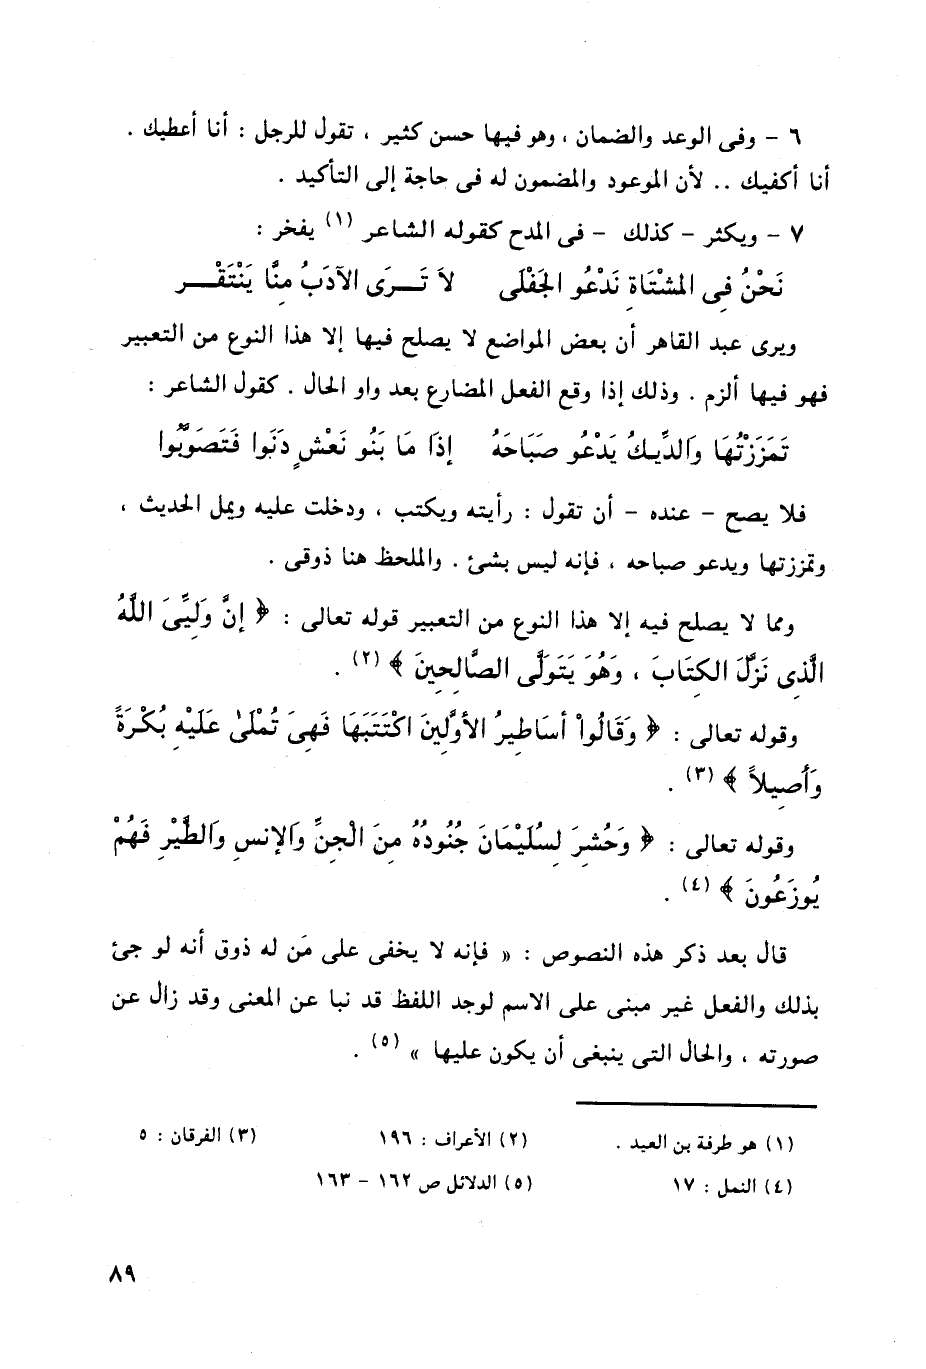 ٦ - وفى الوعد والضمان ، وهو فيها حسن كثير ، تقول للرجل : أنا أعطيك .
أنا أكفيك .. لأن الموعود والمضمون له فى حاجة إلى التأكيد .
٧ - ويكثر - كذلك - فى المدح كقوله الشاعر (١) يفخر :
نَحْنُ فِى المَشْتَاةِ نَدْعُو الجَفْلَى لاَ تَـــرَى الآدَبُ مِنَّا يَنْتَقْـــر
ويرى عبد القاهر أن بعض المواضع لا يصلح فيها إلا هذا النوع من التعبير
فهو فيها ألزم . وذلك إذا وقع الفعل المضارع بعد واو الحال . كقول الشاعر :
تَمَزَزْتُهَا وَالدِّيكُ يَدْعُو صَبَاحَهُ إذَا مَا بَنُو نَعْشٍ دَنَوا فَتَصَوَّبُوا
فلا يصح - عنده - أن تقول : رأيته ويكتب ، ودخلت عليه ويمل الحديث ،
وتمززتها ويدعو صباحه ، فإنه ليس بشئ . والملحظ هنا ذوقى .
ومما لا يصلح فيه إلا هذا النوع من التعبير قوله تعالى : ﴿ إنَّ وَلِيِّىَ اللَّهُ
الَّذِى نَزَّلَ الكِتَابَ ، وَهُوَ يَتَوَلَّى الصَّالِحِينَ ﴾ (٢) .
وقوله تعالى : ﴿ وَقَالُواْ أسَاطِيرُ الأوَّلِينَ اكْتَتَبَهَا فَهِىَ تُمْلَىٰ عَلَيْهِ بُكْرَةً
وَأصِيلاً ﴾ (٣) .
وقوله تعالى : ﴿ وَحُشِرَ لِسُلَيْمَانَ جُنُودُهُ مِنَ الْجِنِّ وَالإنسِ وَالطَّيْرِ فَهُمْ
يُوزَعُونَ ﴾ (٤) .
قال بعد ذكر هذه النصوص : « فإنه لا يخفى على مَن له ذوق أنه لو جئ
بذلك والفعل غير مبنى على الاسم لوجد اللفظ قد نبا عن المعنى وقد زال عن
صورته ، والحال التى ينبغى أن يكون عليها » (٥) .
(١) هو طرفة بن العبد . (٢) الأعراف : ١٩٦ (٣) الفرقان : ٥
(٤) النمل : ١٧ (٥) الدلائل ص ١٦٢ - ١٦٣
٨٩